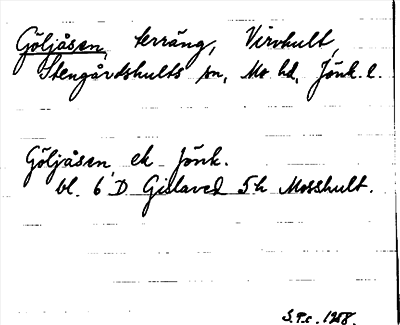 Göljåsen, terräng, Virvhult,
Stengårdshults sn, Mo hd, Jönk. l.
Göljåsen ek Jönk.
bl. 6 D Gislaved 5h Mosshult.
1968.